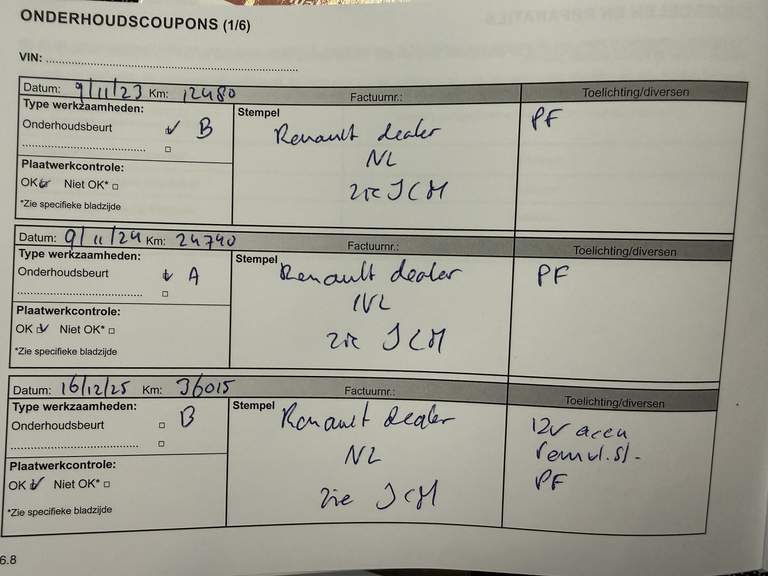 ONDERHOUDSCOUPONS (1/6)
VIN: ......................................................
Datum: 9/11/23 Km: 12480 Factuurnr.: Toelichting/diversen
Type werkzaamheden:
Onderhoudsbeurt B
Plaatwerkcontrole:
OK Niet OK*
*Zie specifieke bladzijde
Stempel
Renault dealer
NL
zie ICM
PF
Datum: 9/11/24 Km: 24740 Factuurnr.: Toelichting/diversen
Type werkzaamheden:
Onderhoudsbeurt A
Plaatwerkcontrole:
OK Niet OK*
*Zie specifieke bladzijde
Stempel
Renault dealer
NL
zie ICM
PF
Datum: 16/12/25 Km: 36015 Factuurnr.: Toelichting/diversen
Type werkzaamheden:
Onderhoudsbeurt B
Plaatwerkcontrole:
OK Niet OK*
*Zie specifieke bladzijde
Stempel
Renault dealer
NL
zie ICM
12v accu
remvl.st-
PF
6.8